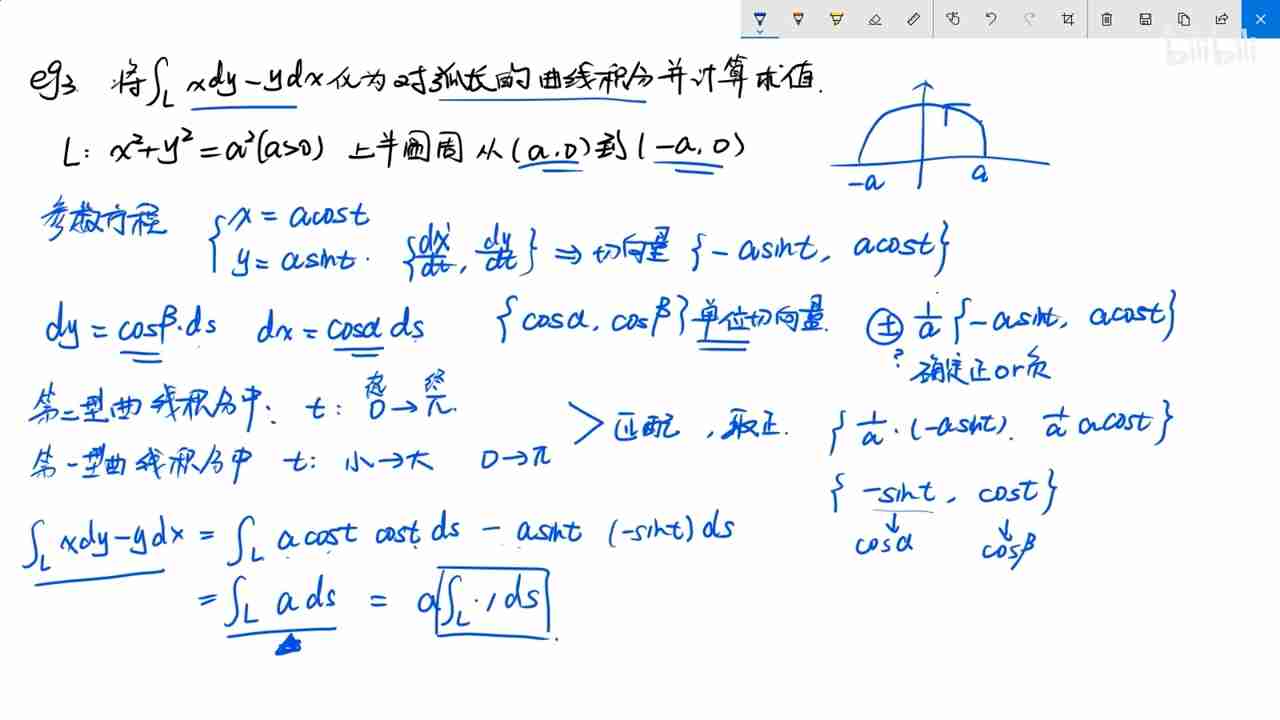 eg3 将∫_L xdy-ydx 化为对弧长的曲线积分并计算求值.
L: x²+y²=a²(a>0) 上半圆周 从(a,0)到(-a,0)
-a a
参数方程 { x=acost
y=asint. {dx/dt, dy/dt} ⇒ 切向量 {-asint, acost}
dy=cosβ·ds dx=cosα ds {cosα, cosβ}单位切向量. ± 1/a {-asint, acost}
? 确定正or负
起 终
第二型曲线积分中: t: 0→π.
> 匹配, 取正. {1/a·(-asint). 1/a acost}
第一型曲线积分中 t: 小→大 0→π
{-sint, cost}
↓ ↓
cosα cosβ
∫_L xdy-ydx = ∫_L acost cost ds - asint (-sint)ds
= ∫_L a ds = a∫_L·1ds.
bilibili